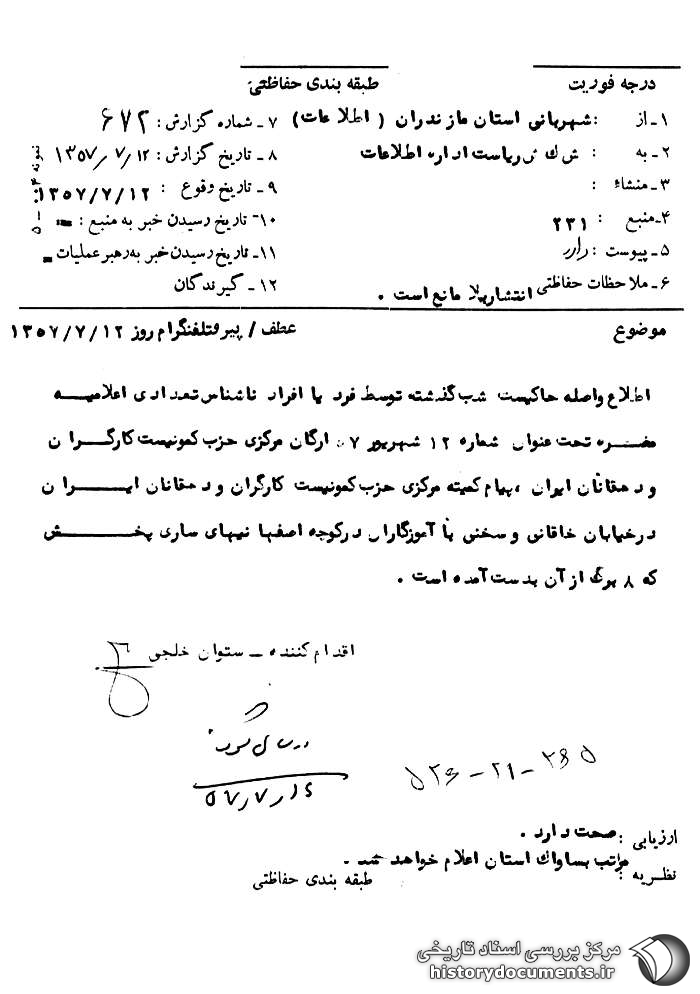 درجه فوریت
طبقه بندی حفاظتی
۱ـ از : شهربانی استان مازندران ( اطلاعات )
۷ ـ شماره گزارش : ۶۷۲
۲ـ به : ش ك ش ریاست اداره اطلاعات
۸ ـ تاریخ گزارش : ۱۳۵۷/۷/۱۲
۳ـ منشاء :
۹ ـ تاریخ وقوع : ۱۳۵۷/۷/۱۲
۴ـ منبع : ۲۳۱
۱۰ـ تاریخ رسیدن خبر به منبع : ـ
۵ ـ پیوست : دارد
۱۱ـ تاریخ رسیدن خبر به رهبر عملیات ـ
۶ ـ ملاحظات حفاظتی انتشار بلا مانع است .
۱۲ ـ گیرندگان
نمونه
موضوع
عطف / پیرو تلفنگرام روز ۱۳۵۷/۷/۱۲
اطلاع واصله حاکیست شب گذشته توسط فرد یا افراد ناشناس تعدادی اعلامیه
مضره تحت عنوان شماره ۱۲ شهریور ۵۷ ارگان مرکزی حزب کمونیست کارگران
و دهقانان ایران ، پیام کمیته مرکزی حزب کمونیست کارگران و دهقانان ایران
در خیابان خاقانی و سخنی با آموزگاران در کوچه اصفهانیهای ساری پخش
که ۸ برگ از آن بدست آمده است .
اقدام کننده ـ ستوان خلجی
۵۷/۷/۱۶
ارزیابی : صحت دارد .
نظریه : مراتب بساواك استان اعلام خواهد شد .
طبقه بندی حفاظتی
مرکز بررسی اسناد تاریخی
historydocuments.ir